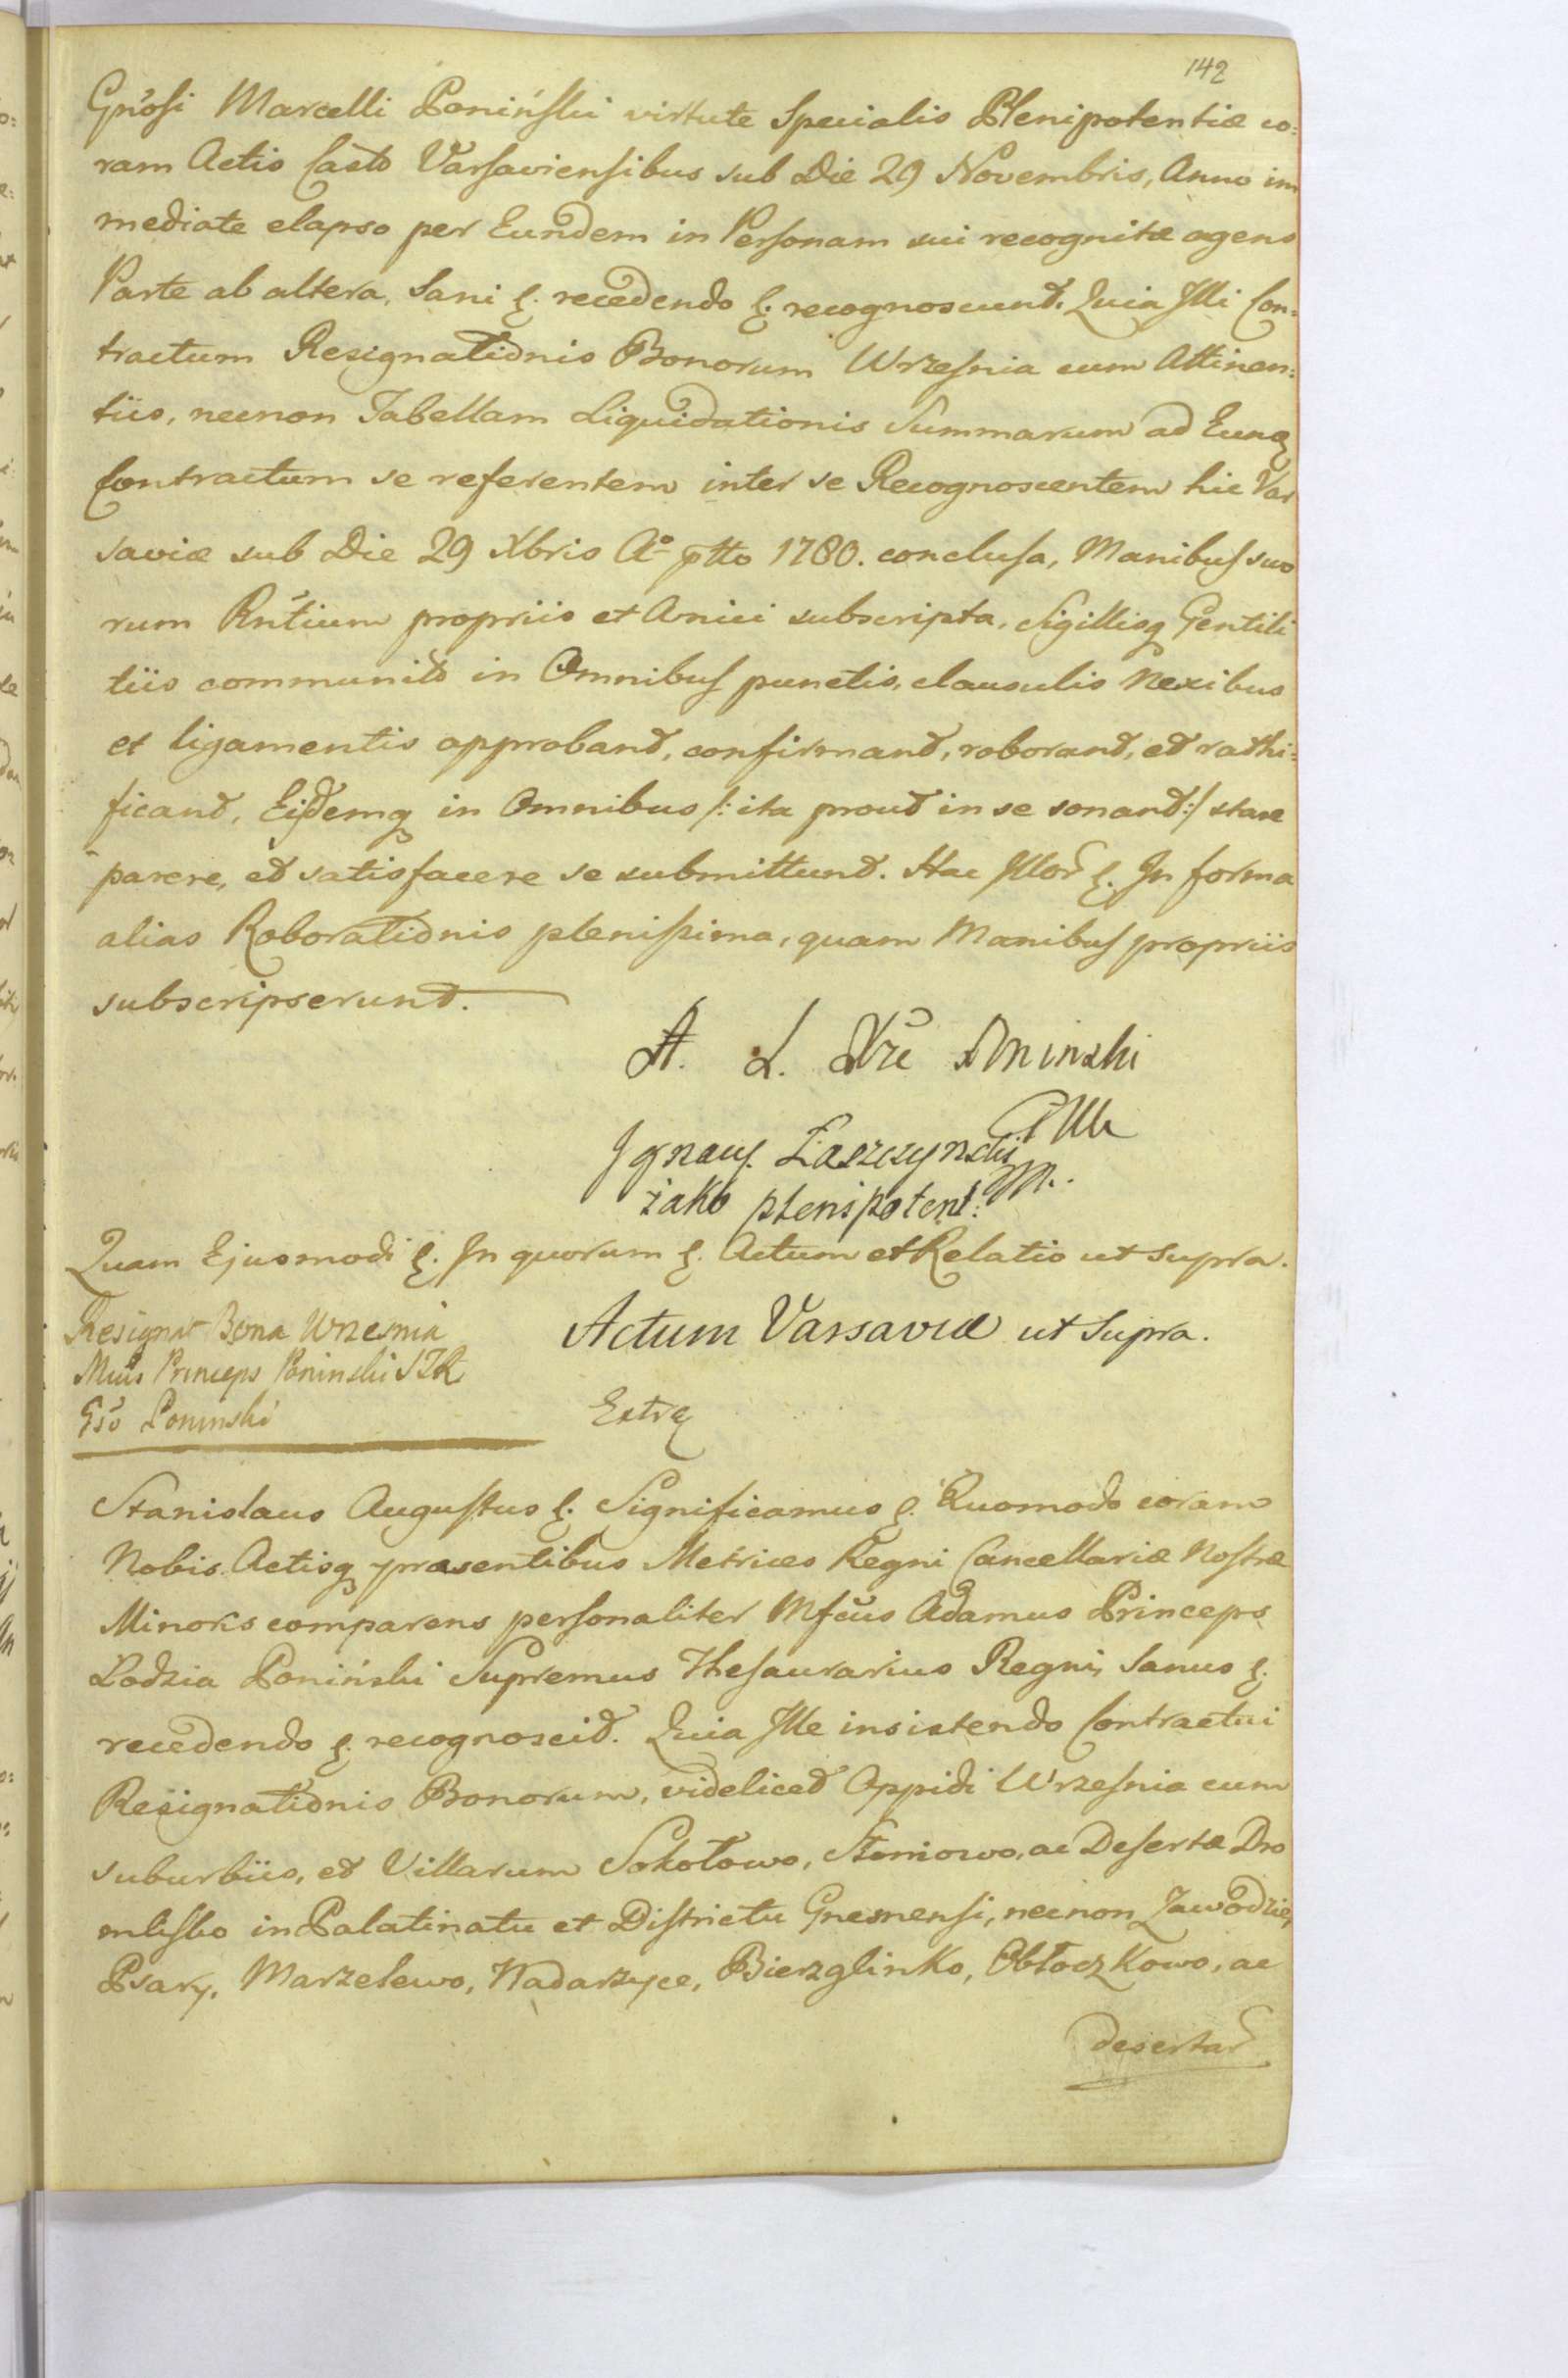 142
Gnosi Marcelli Poniński virtute Specialis Plenipotentiæ co=
ram Actis Casto Varsaviensibus sub Die 29 Novembris, Anno im
mediate elapso per Eundem in Personam sui recognitæ agens
Parte ab altera, Sani &. recedendo &. recognoscunt. Quia Illi Con=
tractum Resignationis Bonorum Wrzesnia cum Attinen=
tiis, necnon Tabellam Liquidationis Summarum ad Eunq
Contractum se referentem inter se Recognoscentem hic Var
saviæ sub Die 29 Xbris Aº ptto 1780. conclusa, Manibus suo
rum Rntium propriis et Amici subscripta, Sigillisq Gentili
tiis communits in Omnibus punctis, clausulis Nexibus
et ligamentis approband, confirmand, roborand, et rathi=
ficand, Eisdemq in Omnibus /: ita prout in se sonant :/ stare
parere, et satisfacere se submittunt. Hac Illor &. In forma
alias Roborationis plenissima, quam Manibus propriis
subscripserunt.
A. L. Xże Poninski
Ignacy Łaszczynski
iako plenipotent:
Quam Ejusmodi &. In quorum &. Actum et Relatio ut supra.
Resignat Bona Wrzesnia
Princeps Poninski
Gso Poninski
Actum Varsaviæ ut Supra.
Extrq
Stanislaus Augustus &. Significamus &. Quomodo coram
Nobis Actisq præsentibus Metrices Regni Cancellariæ Nostræ
Minoris comparens personaliter Mfcus Adamus Princeps
Lodzia Poniński Supremus Thesaurarius Regni, Sanus &.
recedendo &. recognoscit. Quia Ille insistendo Contractui
Resignationis Bonorum, videlicet Oppidi Wrzesnia cum
suburbiis, et Villarum Sokołowo, Słomowo, ac Desertæ Dro
in Palatinatu et Districtu Gnesnensi, necnon Zawodzie,
Psary, Marzelewo, Nadarzyce, Bierzglinko, Obłoczkowo, ac
desertar